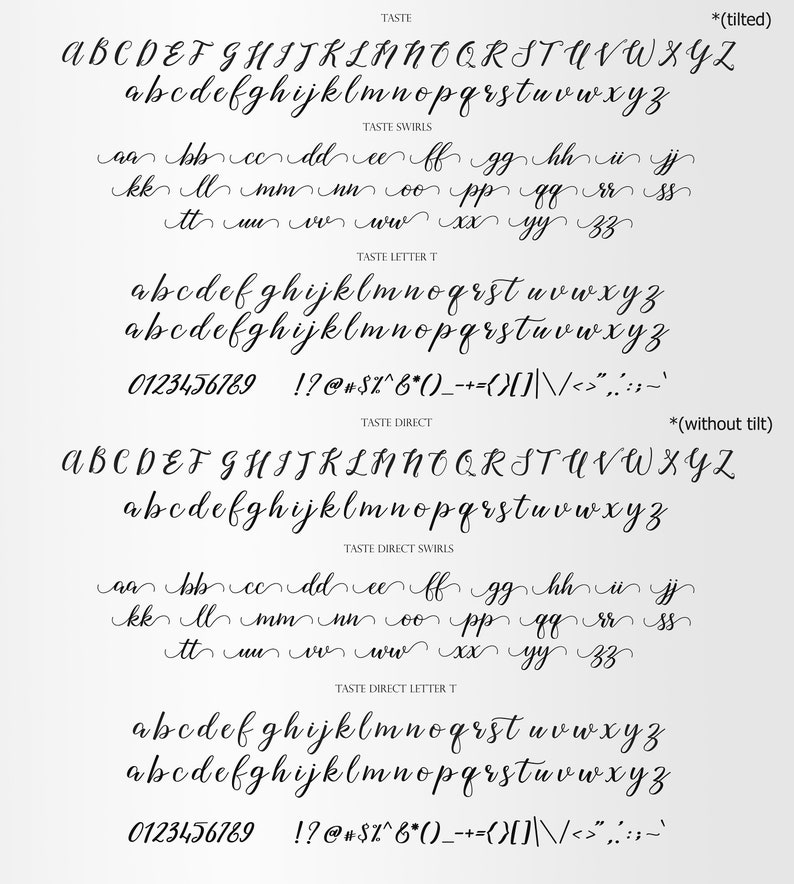 TASTE
*(tilted)
A B C D E F G H I J K L M N O Q R S T U V W X Y Z
a b c d e f g h i j k l m n o p q r s t u v w x y z
TASTE SWIRLS
aa bb cc dd ee ff gg hh ii jj
kk ll mm nn oo pp qq rr ss
tt uu vv ww xx yy zz
TASTE LETTER T
a b c d e f g h i j k l m n o q r s t u v w x y z
a b c d e f g h i j k l m n o p q r s t u v w x y z
0123456789 !?@#$%^&*()_-+={}[]|\/<>",.':;~`
TASTE DIRECT
*(without tilt)
A B C D E F G H I J K L M N O Q R S T U V W X Y Z
a b c d e f g h i j k l m n o p q r s t u v w x y z
TASTE DIRECT SWIRLS
aa bb cc dd ee ff gg hh ii jj
kk ll mm nn oo pp qq rr ss
tt uu vv ww xx yy zz
TASTE DIRECT LETTER T
a b c d e f g h i j k l m n o q r s t u v w x y z
a b c d e f g h i j k l m n o p q r s t u v w x y z
0123456789 !?@#$%^&*()_-+={}[]|\/<>",.':;~`